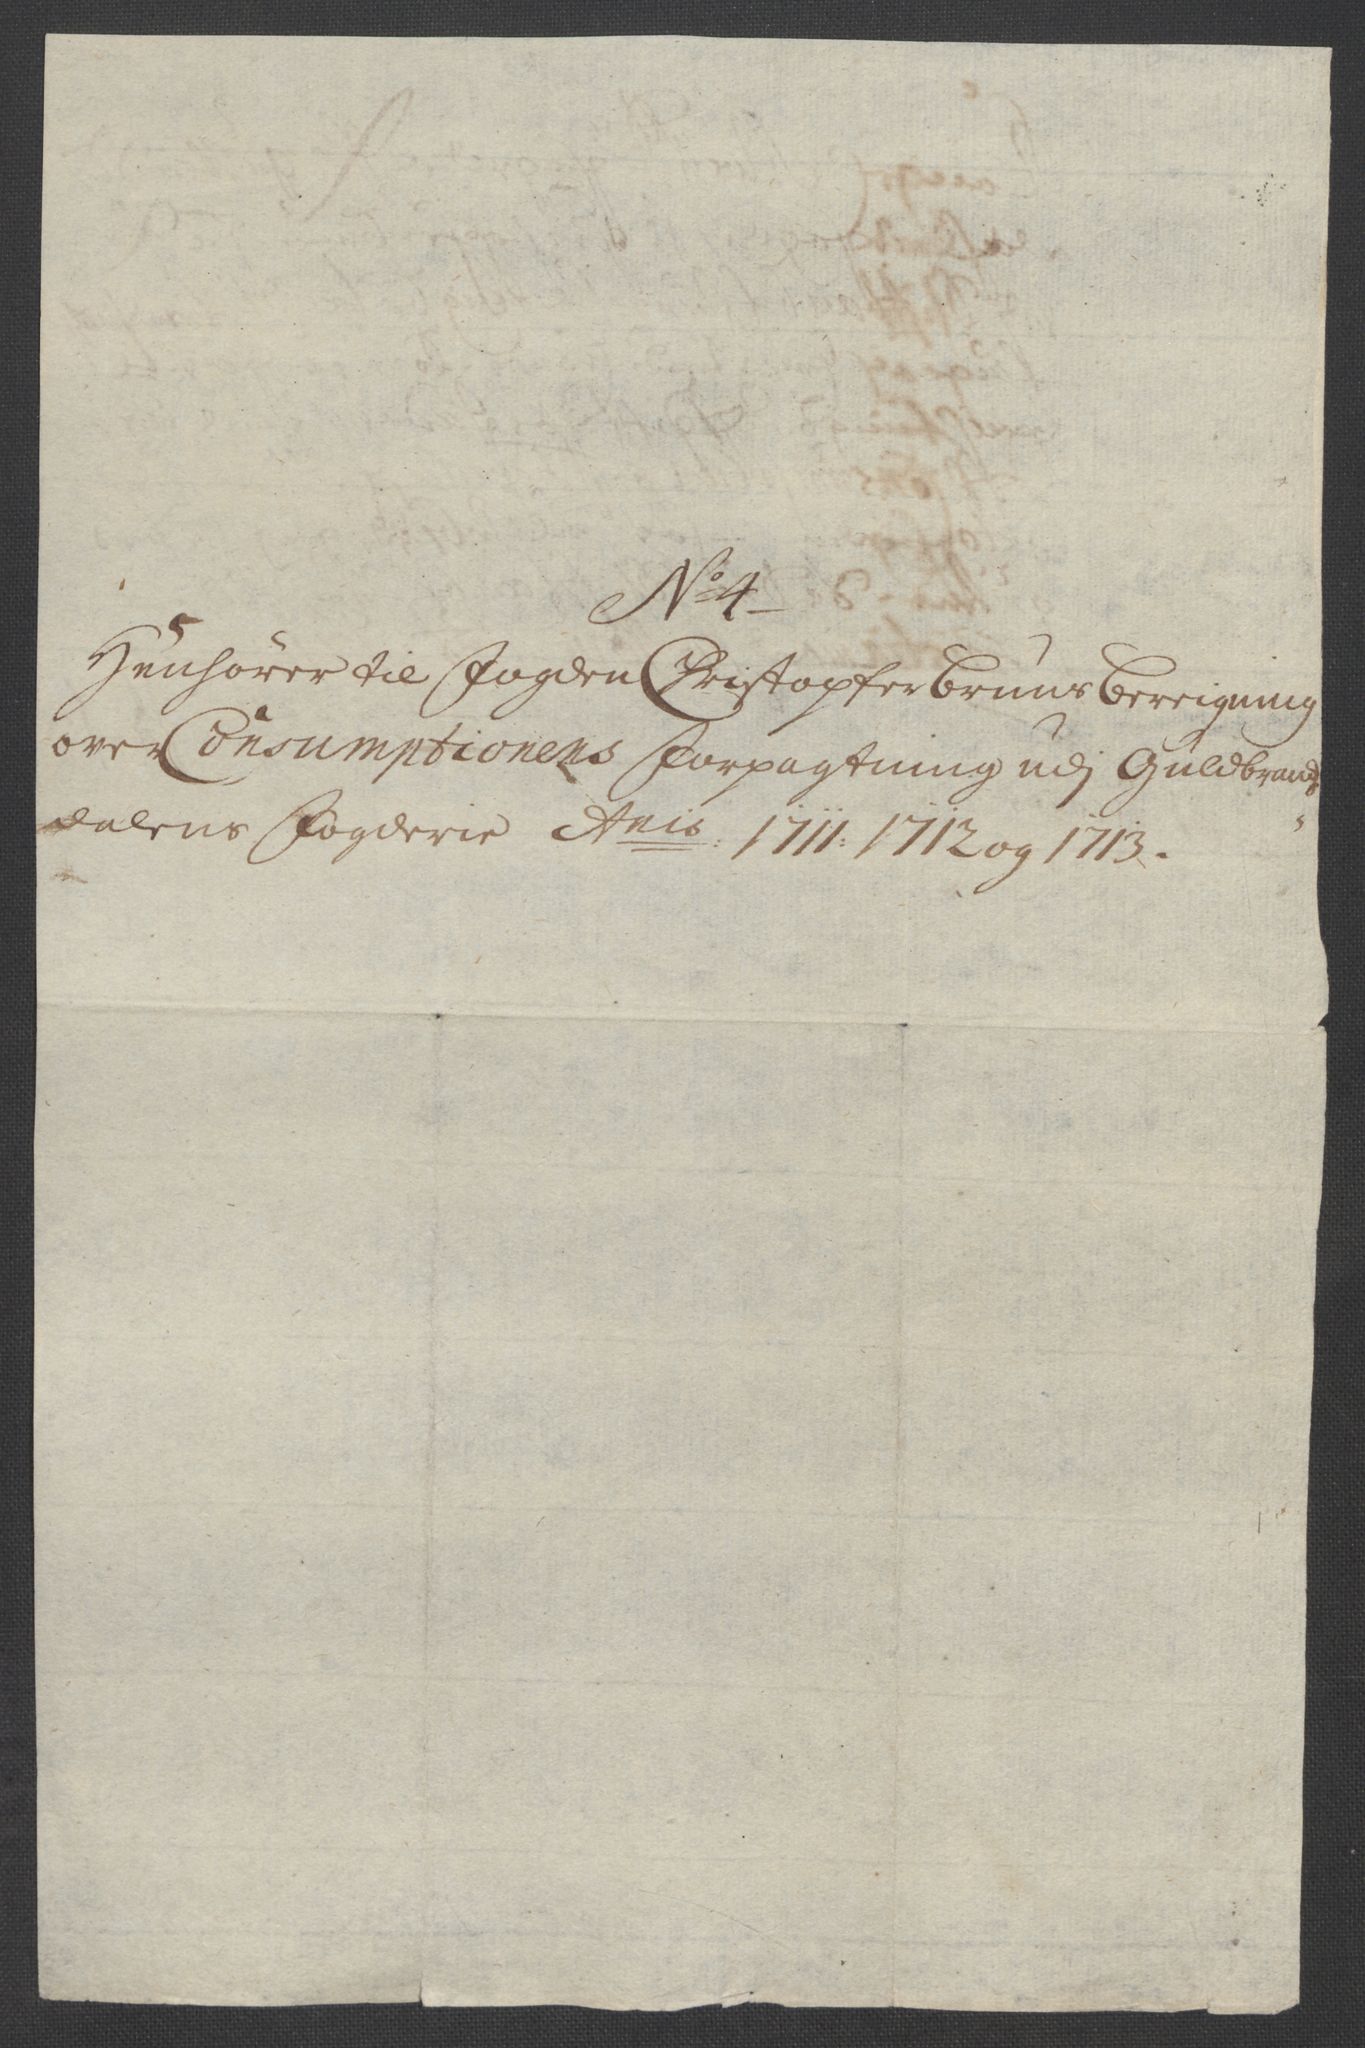 No 4
Henhörer til Fogden Christopfer bruns bereigning
over Consumptionens Forpagtning udj Guldbrands
dalens Fogderie Anis 1711: 1712 og 1713.